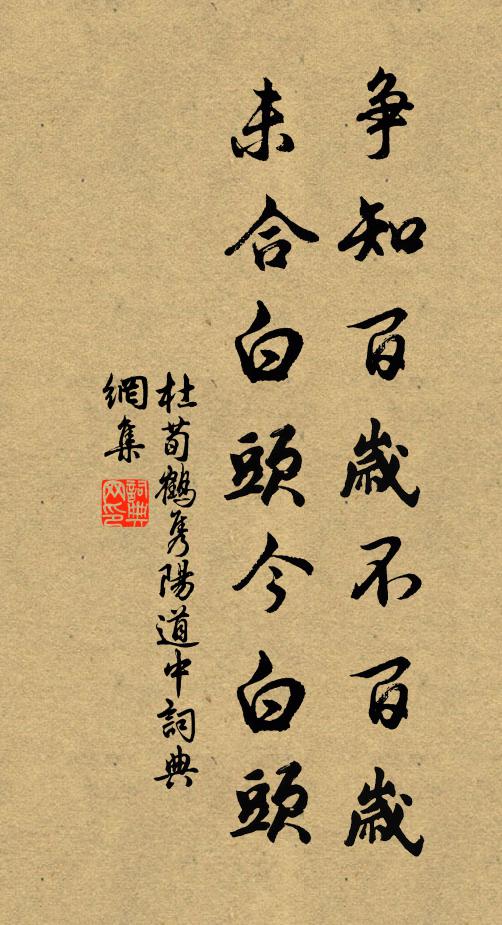 争知百歲不百歲
未合白頭今白頭
杜荀鶴雋陽道中詞典
網集
詞典
网印